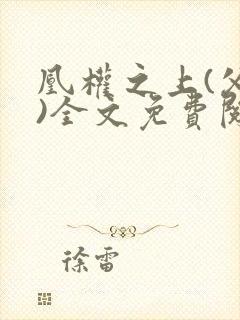 凰權之上(父
)全文免費閱
徐雷